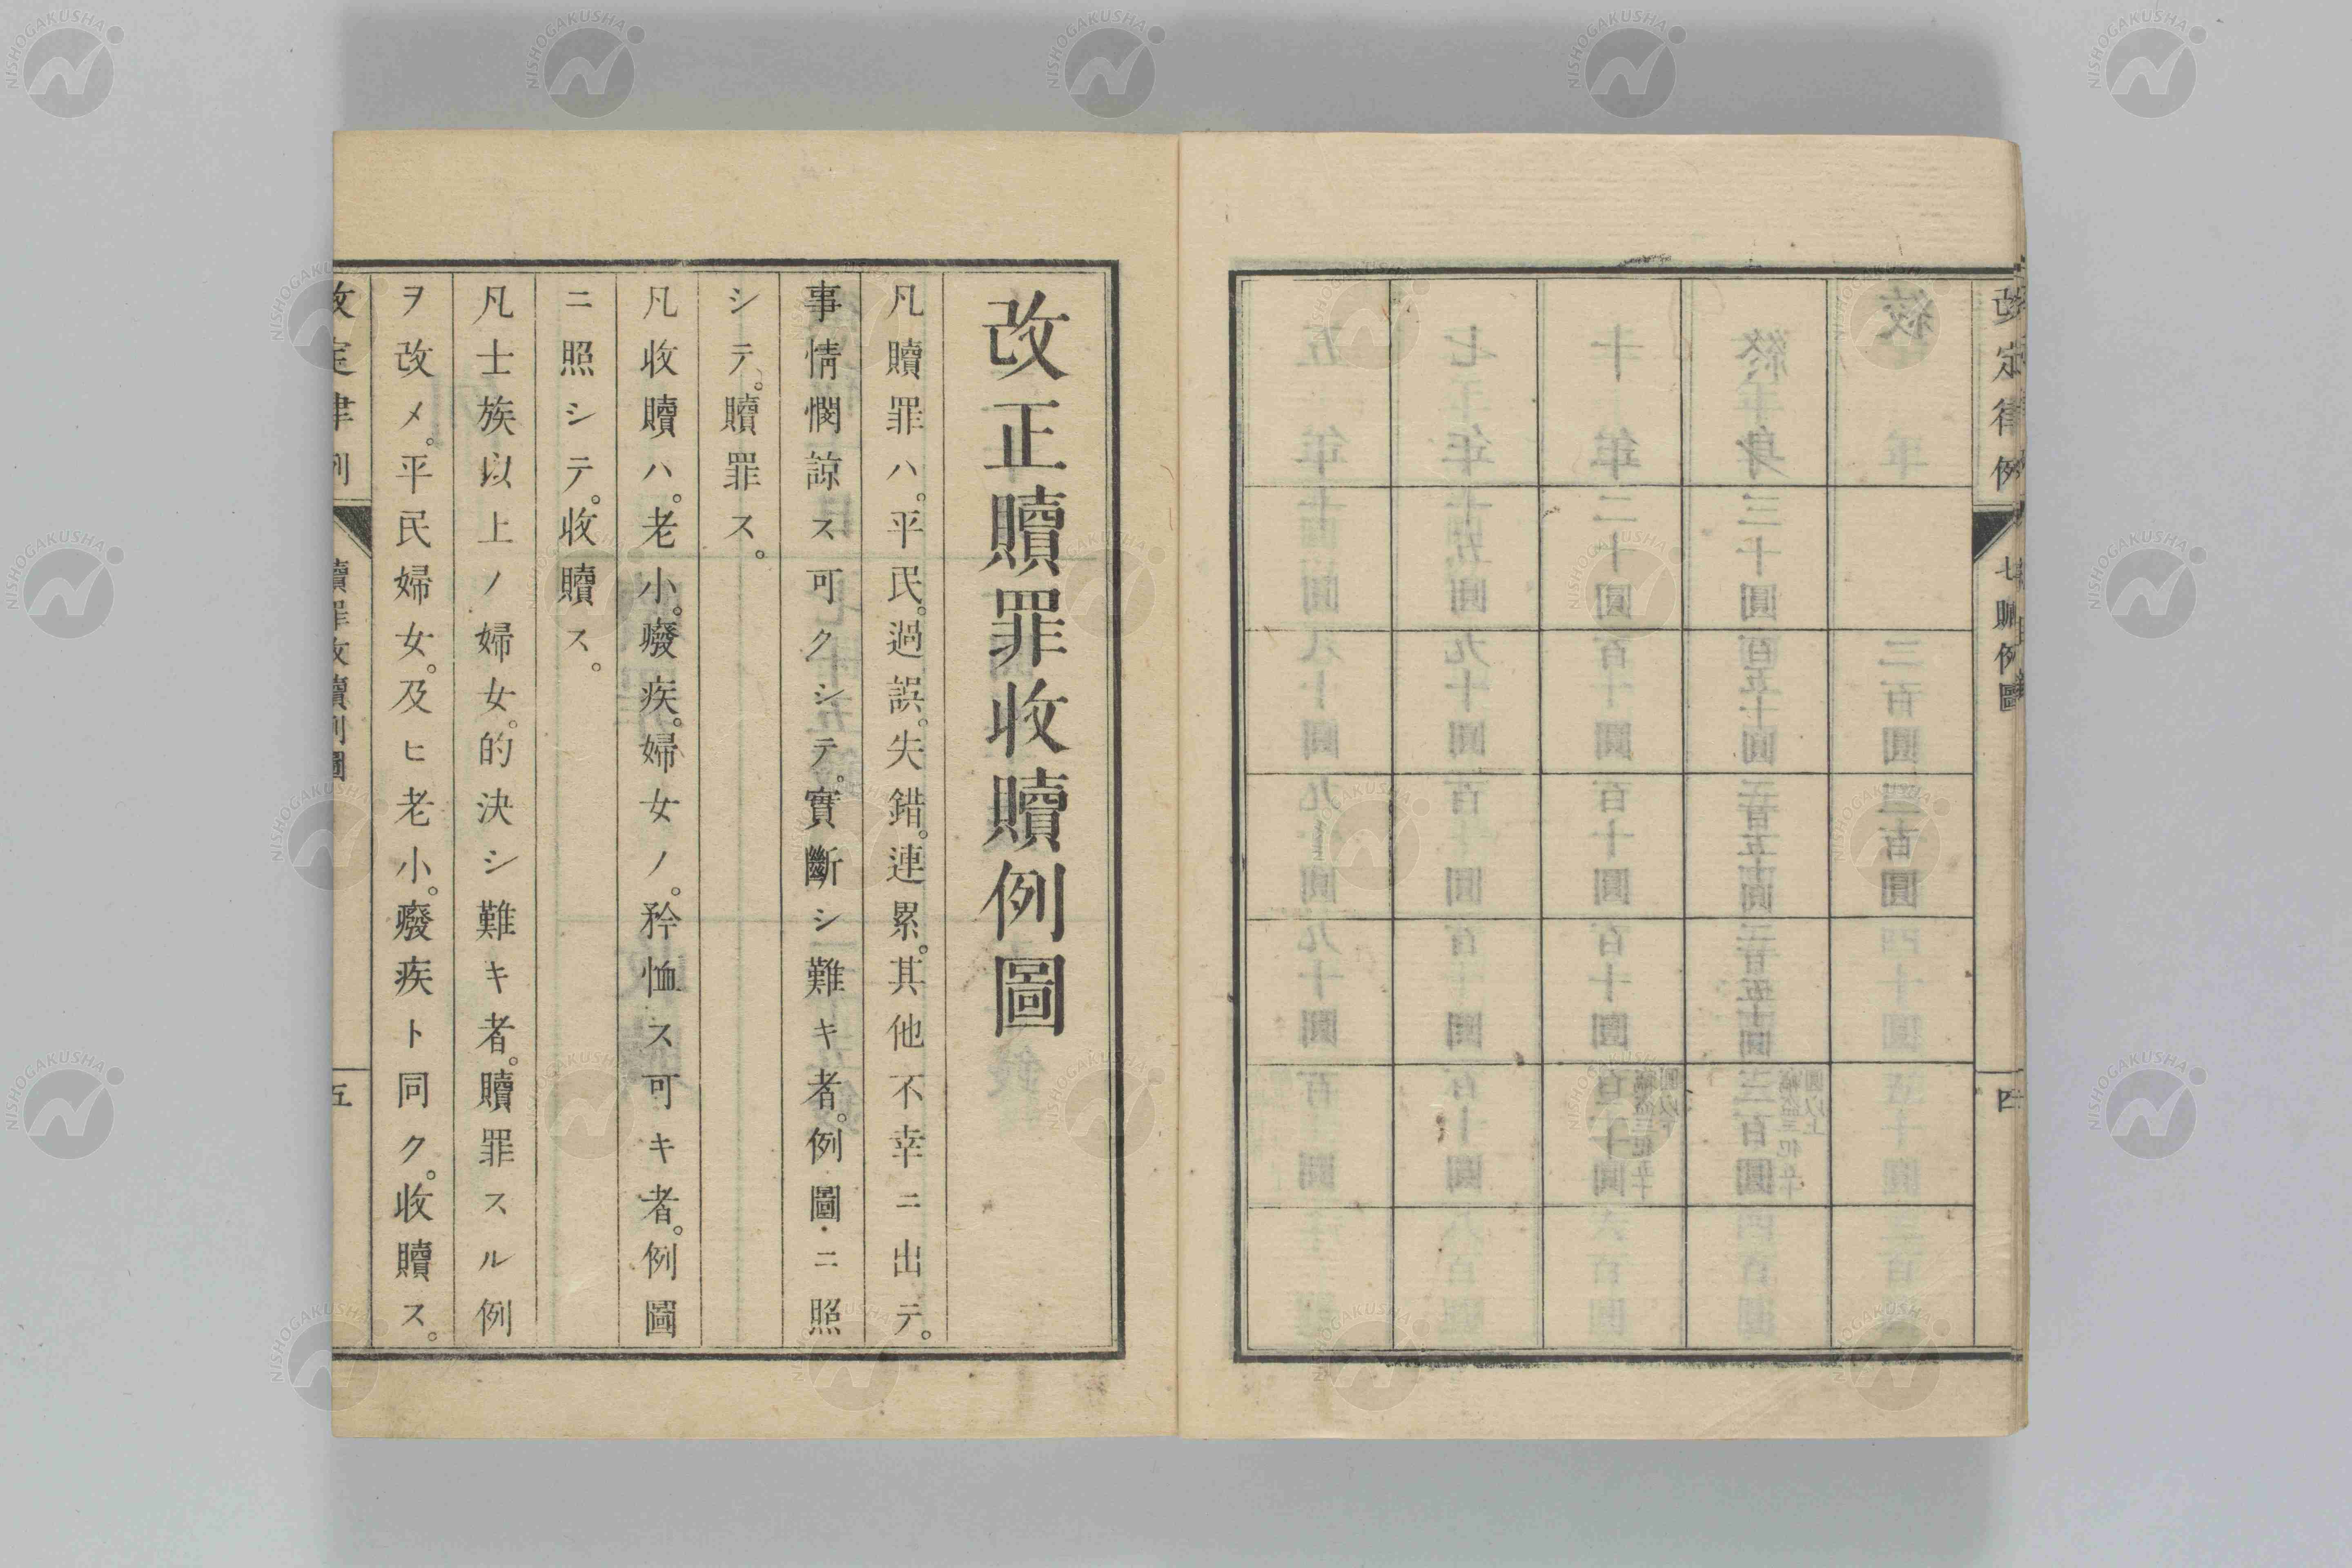 改定律例
七贓例圖
四
改正贖罪收贖例圖
凡贖罪ハ。平民。過誤。失錯。連累。其他不幸ニ出テ。
事情憫諒ス可クシテ。實斷シ難キ者。例圖ニ照
シテ。贖罪ス。
凡收贖ハ。老小。癈疾。婦女ノ。矜恤ス可キ者。例圖
ニ照シテ。收贖ス。
凡士族以上ノ婦女。的決シ難キ者。贖罪スル例
ヲ改メ。平民婦女。及ヒ老小。癈疾ト同ク。收贖ス。
改定律例
贖罪收贖例圖
五
NISHOGAKUSHA